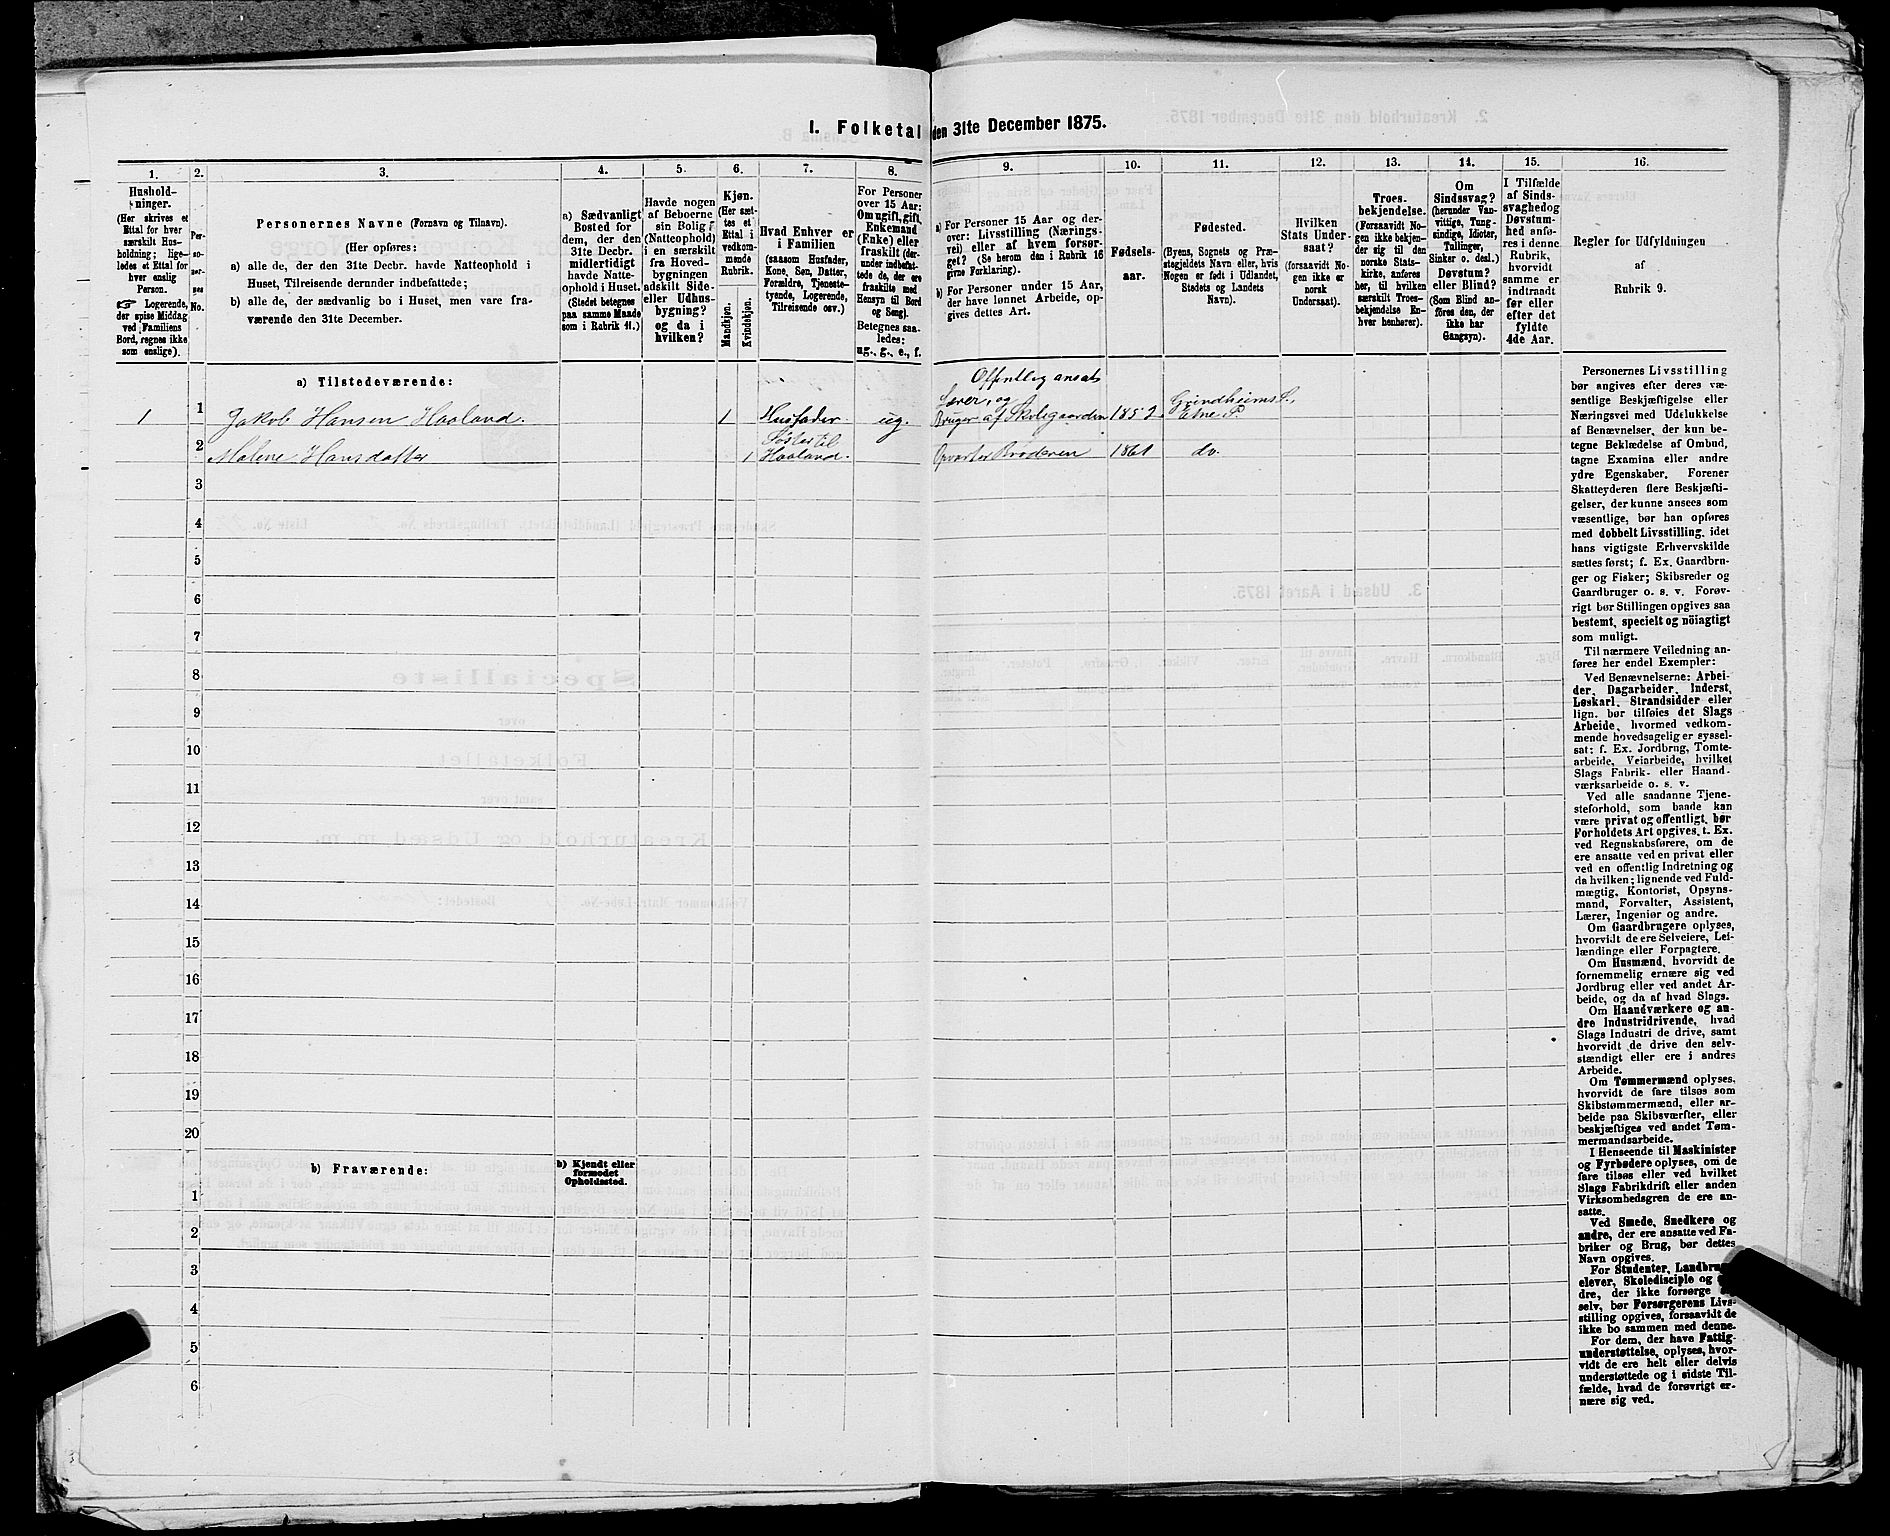 I. Folketal den 31te December 1875.
1.
2.
3.
4.
5.
6.
7.
8.
9.
10.
11.
12.
13.
14.
15.
16.
Hushold-
ninger.
(Her skrives et
Ettal for hver
særskilt Hus-
holdning; lige-
ledes et Ettal for
hver enslig
Person.
☞ Logerende,
der spise Middag
ved Familiens
Bord, regnes ikke
som enslige).
Per-
so-
ner-
nes
No.
Personernes Navne (Fornavn og Tilnavn).
(Her opføres:
a) alle de, der den 31te Decbr. havde Natteophold i
Huset, Tilreisende derunder indbefattede;
b) alle de, der sædvanlig bo i Huset, men vare fra-
værende den 31te December.
a) Sædvanligt
Bosted for
dem, der den
31te Decbr.
midlertidigt
havde Natte-
ophold i Huset.
(Stedet betegnes
paa samme Maade
som i Rubrik 11.)
Havde nogen
af Beboerne
sin Bolig
(Natteophold)
i en særskilt
fra Hoved-
bygningen
adskilt Side-
eller Udhus-
bygning?
og da i
hvilken?
Kjøn.
(Her sæt-
tes et
Ettal i
vedkom-
mende
Rubrik.
Mandkjøn.
Kvindekjøn.
Hvad Enhver er
i Familien
(saasom Husfader,
Kone, Søn, Datter,
Forældre, Tjeneste-
tyende, Logerende,
Tilreisende osv.)
For Personer
over 15 Aar:
Om ugift, gift,
Enkemand
(Enke) eller
fraskilt (der-
under indbefat-
tede de, der ere
fraskilte med
Hensyn til Bord
og Seng).
Betegnes saa-
ledes:
ug., g., e., f.
a) For Personer 15 Aar og der-
over: Livsstilling (Nærings-
vei) eller af hvem forsør-
get? (Se herom den i Rubrik 16
givne Forklaring).
b) For Personer under 15 Aar,
der have lønnet Arbeide, op-
gives dettes Art.
Fødsels-
aar.
Fødested.
(Byens, Sognets og Præ-
stegjeldets Navn eller, hvis
Nogen er født i Udlandet,
Stedets og Landets
Navn).
Hvilken
Stats Under-
saat?
(forsaavidt No-
gen ikke er
norsk
Undersaat).
Troes-
bekjendelse.
(Forsaavidt No-
gen ikke bekjen-
der sig til den
norske Stats-
kirke, anføres
her, til hvilken
særskilt Troes-
bekjendelse En-
hver henhører).
Om
Sindssvag?
(herunder Van-
vittige, Tung-
sindige, Idioter,
Tullinger,
Sinker o. desl.)
Døvstum?
eller Blind?
(Som Blind an-
føres den, der
ikke har
Gangsyn).
I Tilfælde
af Sinds-
svaghed og
Døvstum-
hed anfø-
res i denne
Rubrik,
hvorvidt
samme er
indtraadt
før eller
efter det
fyldte
4de Aar.
Regler for Udfyldningen
af
Rubrik 9.
a) Tilstedeværende:
Offentlig ansat
1 1 Jakob Hansen Haaland. 1 Husfader ug. Lærer, og Bruger af Skolegaarden 1852 Grindheims S., Etne P
2 Malene Hansdatter 1 Søster til Haaland. Opvarter Broderen 1861 do.
3
4
5
6
7
8
9
10
11
12
13
14
15
16
17
18
19
20
b) Fraværende:
b) Kjendt eller
formodet
Opholdssted.
1
2
3
4
5
6
Personernes Livsstilling
bør angives efter deres væ-
sentlige Beskjæftigelse eller
Næringsvei med Udelukkelse
af Benævnelser, der kun be-
tegne Beklædelse af Ombud,
tagne Examina eller andre
ydre Egenskaber. Forener
Skatteyderen flere Beskjæfti-
gelser, der kunne ansees som
væsentlige, bør han opføres
med dobbelt Livsstilling, idet
hans vigtigste Erhvervskilde
sættes først; f. Ex. Gaardbru-
ger og Fisker; Skibsreder og
Gaardbruger o. s. v. Forøv-
rigt bør Stillingen opgives saa
bestemt, specielt og nöiagtigt
som muligt.
Til nærmere Veiledning an-
føres her endel Exempler:
Ved Benævnelserne: Arbei-
der, Dagarbeider, Inderst,
Løskarl, Strandsidder eller
lign. bør tilføies det Slags
Arbeide, hvormed vedkom-
mende hovedsagelig er syssel-
sat; f. Ex. Jordbrug, Tomte-
arbeide, Veiarbeide, hvilket
Slags Fabrik- eller Haand-
værksarbeide o. s. v.
Ved alle saadanne Tjene-
steforhold, som baade kan
være privat og offentligt, bør
Forholdets Art opgives, t. Ex.
ved Regnskabsførere, om de
ere ansatte ved en privat eller
ved en offentlig Indretning og
da hvilken; lignende ved Fuld-
mægtig, Kontorist, Opsyns-
mand, Forvalter, Assistent,
Lærer, Ingeniør og andre.
Om Gaardbrugere oplyses,
hvorvidt de ere Selveiere, Lei-
lændinge eller Forpagtere.
Om Husmænd, hvorvidt de
fornemmelig ernære sig ved
Jordbrug eller ved andet Ar-
beide, og da af hvad Slags.
Om Haandværkere og an-
dre Industridrivende, hvad
Slags Industri de drive, samt
hvorvidt de drive den selv-
stændigt eller ere i andres
Arbeide.
Om Tømmermænd oplyses,
hvorvidt de fare tilsøs som
Skibstømmermænd, eller ar-
beide paa Skibsværfter, eller
beskjæftiges ved andet Tøm-
mermandsarbeide.
I Henseende til Maskinister
og Fyrbødere oplyses, om de
fare tilsøs eller ved hvilket
Slags Fabrikdrift eller anden
Virksomhedsgren de ere an-
satte.
Ved Smede, Snedkere og
andre, der ere ansatte ved Fa-
briker og Brug, bør dettes
Navn opgives.
For Studenter, Landbrugs-
elever, Skoledisciple og
dre, der ikke forsørge
selv, bør Forsørgerens Livs-
stilling opgives, forsaavidt de
ikke bo sammen med denne.
For dem, der have Fattig-
understøttelse, oplyses, hvor-
vidt de ere helt eller delvis
understøttede og i sidste Til-
fælde, hvad de forøvrigt er-
nære sig ved.